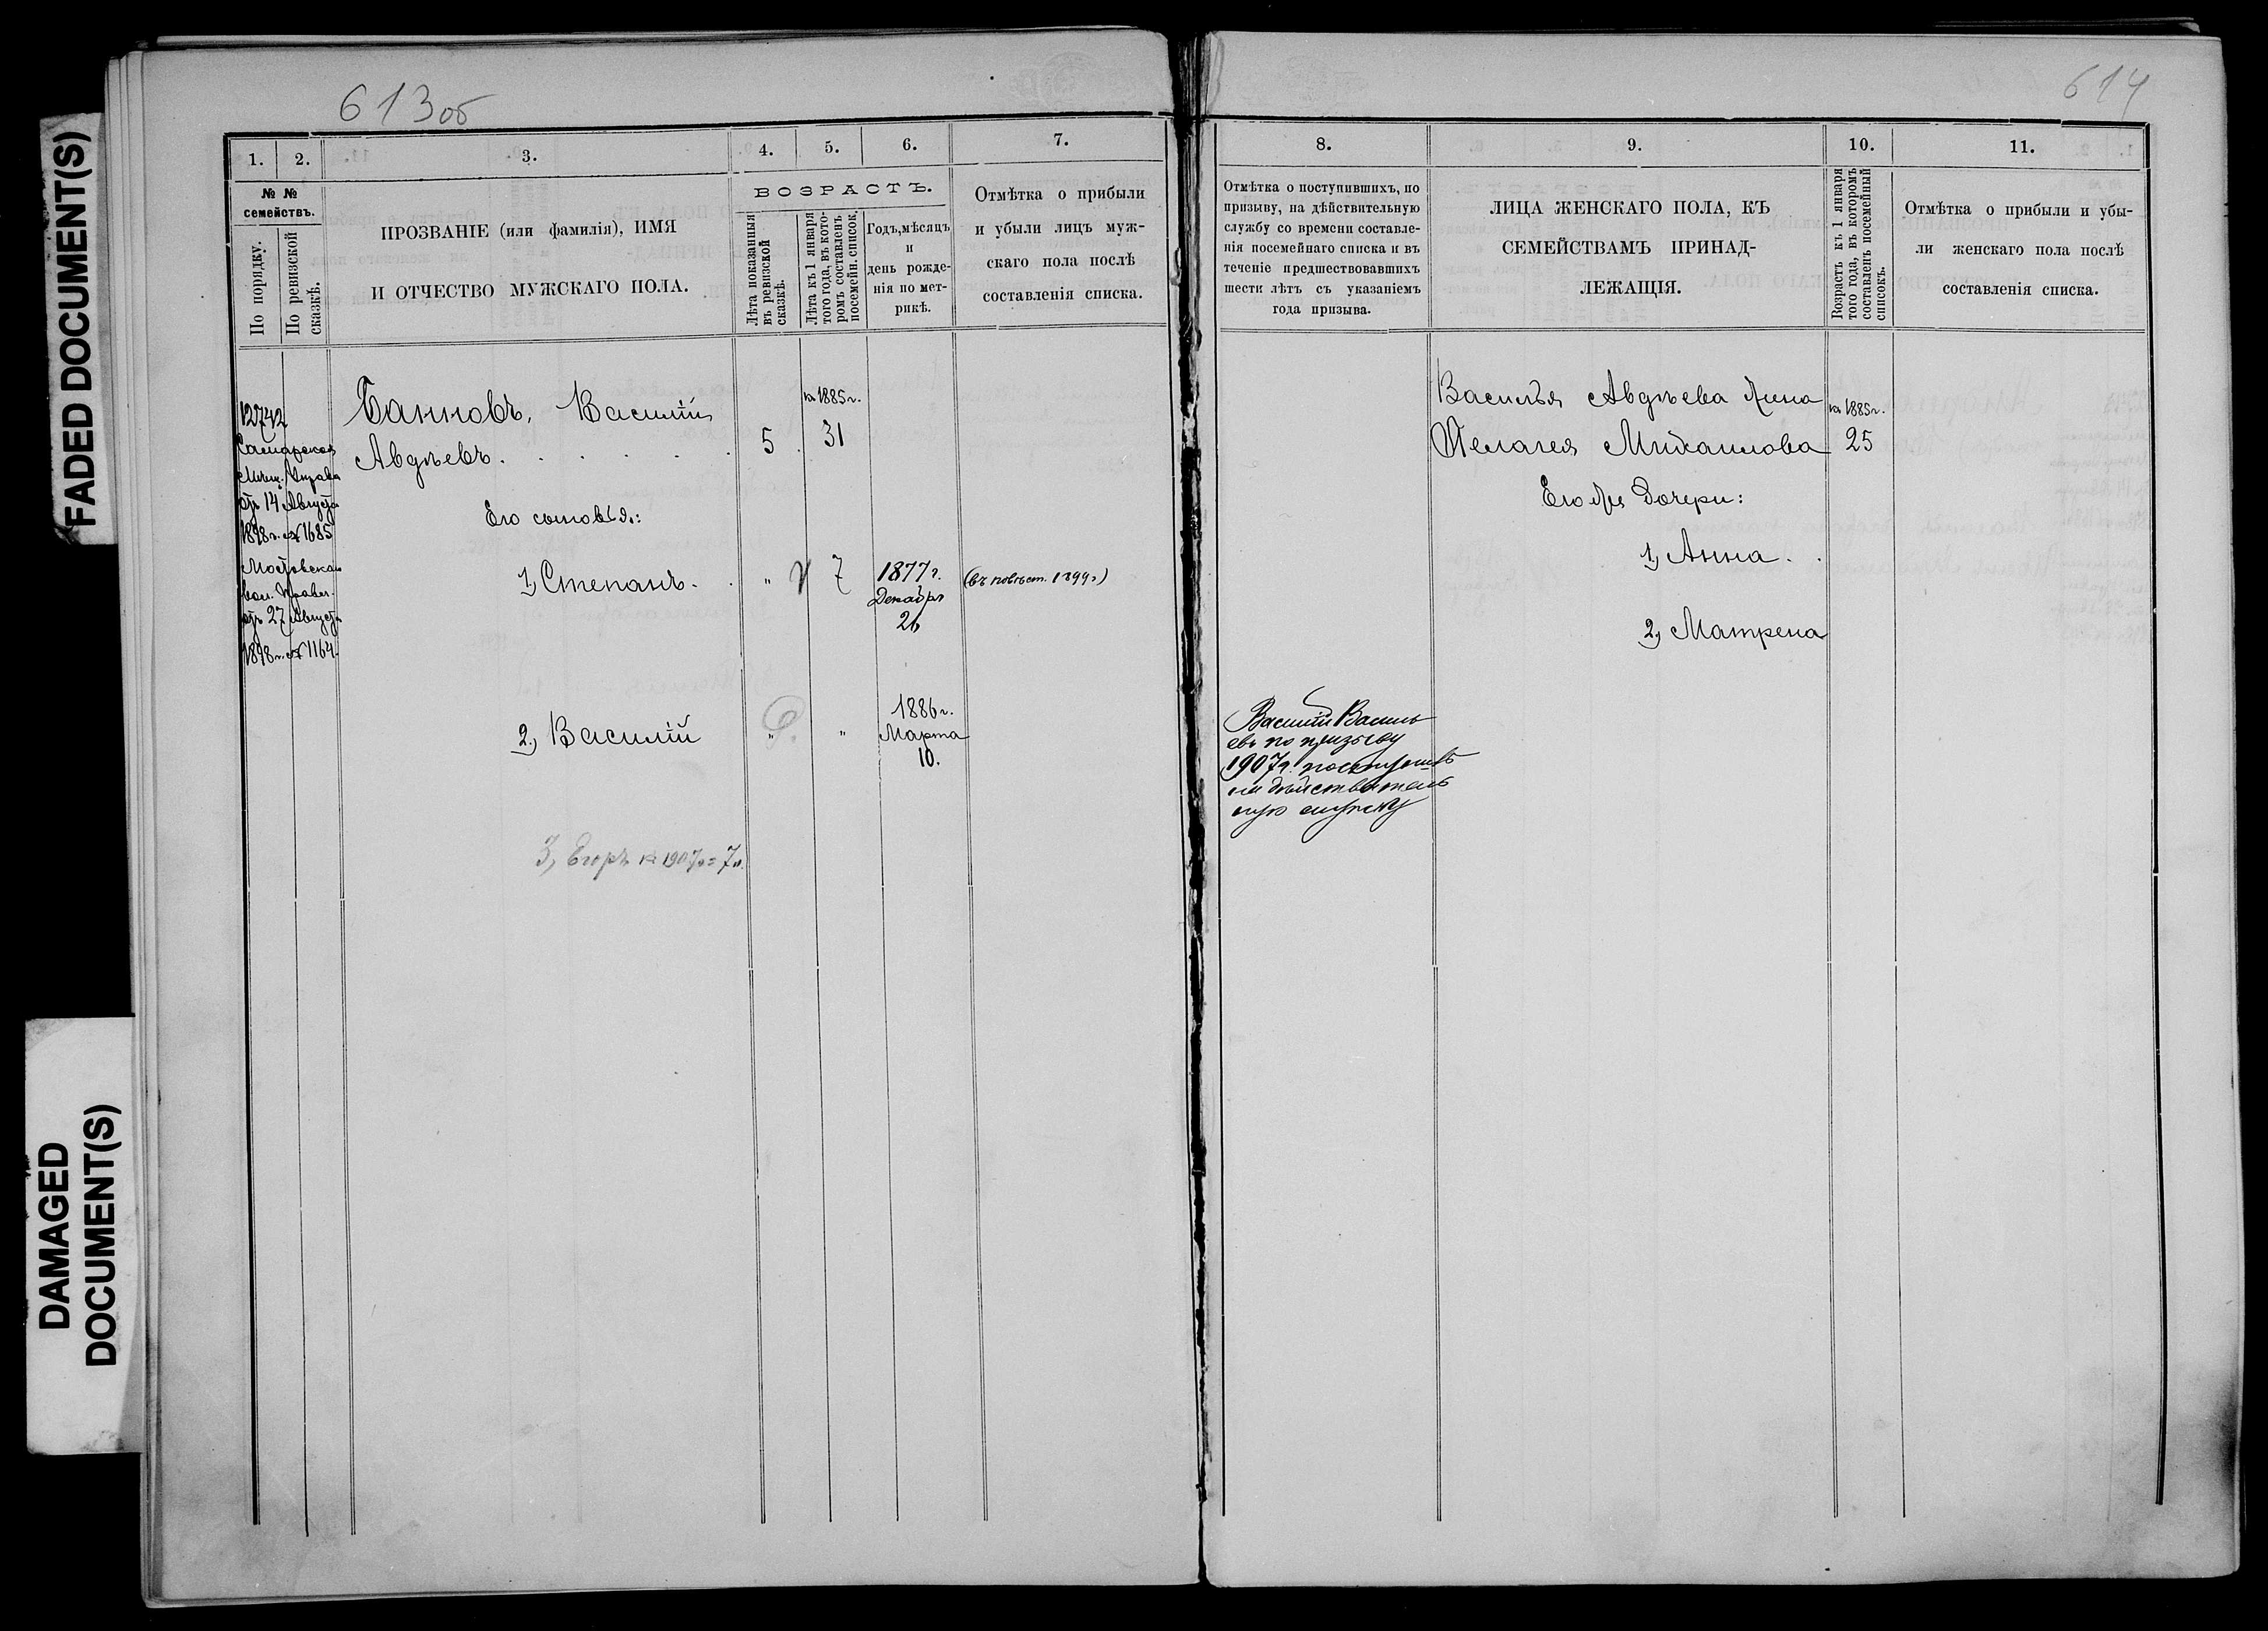 FADED DOCUMENT(S)
DAMAGED
DOCUMENT(S)
613об
1. 2. 3. 4. 5. 6. 7.
№ №
семействъ.
По порядку.
По ревизской
сказкѣ.
ПРОЗВАНІЕ (или фамилія), ИМЯ
И ОТЧЕСТВО МУЖСКАГО ПОЛА.
ВОЗРАСТЪ.
Лѣта показанныя
въ ревизской
сказкѣ.
Лѣта къ 1 января
того года, въ кото-
ромъ составленъ
посемейн. список.
Годъ, мѣсяцъ
и
день рожде-
нія по мет-
рикѣ.
Отмѣтка о прибыли
и убыли лицъ муж-
скаго пола послѣ
составленія списка.
12742
Самарская
Мѣщ. Управа
отъ 14 Августа
1898 г. № 1685
Мостовская
вол. Правл.
отъ 27 Августа
1898 г. № 1164.
Банновъ, Василій
Авдѣевъ . . . . . . 5 31
на 1885 г.
Его сыновья:
1, Степанъ . . " 7 1877 г.
Декабря
26
(въ повѣст. 1899 г)
2, Василій " " 1886 г.
Марта
10.
3, Егоръ къ 1907 г = 7 л.
614
8. 9. 10. 11.
Отмѣтка о поступившихъ, по
призыву, на дѣйствительную
службу со времени составле-
нія посемейнаго списка и въ
теченіе предшествовавшихъ
шести лѣтъ съ указаніемъ
года призыва.
ЛИЦА ЖЕНСКАГО ПОЛА, КЪ
СЕМЕЙСТВАМЪ ПРИНАД-
ЛЕЖАЩІЯ.
Возрастъ къ 1 января
того года, въ которомъ
составленъ посемейный
списокъ.
Отмѣтка о прибыли и убы-
ли женскаго пола послѣ
составленія списка.
Василья Авдѣева жена
на 1885 г.
Пелагея Михаилова 25
Его же дочери:
1, Анна . .
2, Матрена
Василій Василь
евъ по призыву
1907 г. поступилъ
на дѣйствитель
ную службу